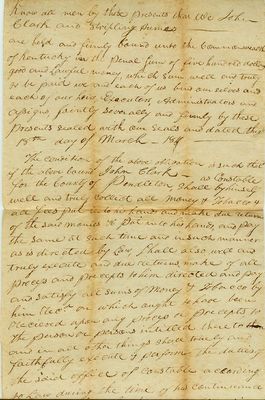 Know all men by these presents that We John
Clark and
are held and firmly bound unto the Commonwealth
of Kentucky in the Penal sum of five hundred dollars
good and Lawful money, which sum well and truly
to be paid we and each of us bind ourselves and
each of our heirs Executors, Administrators and
assigns jointly severally and firmly by these
Presents sealed with our seals and dated this
18th day of March
The condition of the above obligation is such that
if the above bound John Clark as Constable
for the County of Pendleton, Shall by himself
well and truly collect all Money & Tobacco &
all fees put into his hands and make due return
of the said monies & put into his hands, and pay
the same at such time and in such manner
as is directed by Law, Shall also well and
truly execute and due returns make of all
process and precepts to him directed and pay
and satisfy all sums of Money & Tobacco by
him Recd or which ought to have been
Received upon any process or precepts to
the person or persons intitled thereto
and in all other things shall truly and
faithfully execute & perform the duties of
the said office of Constable according
to Law during the time of his continuance